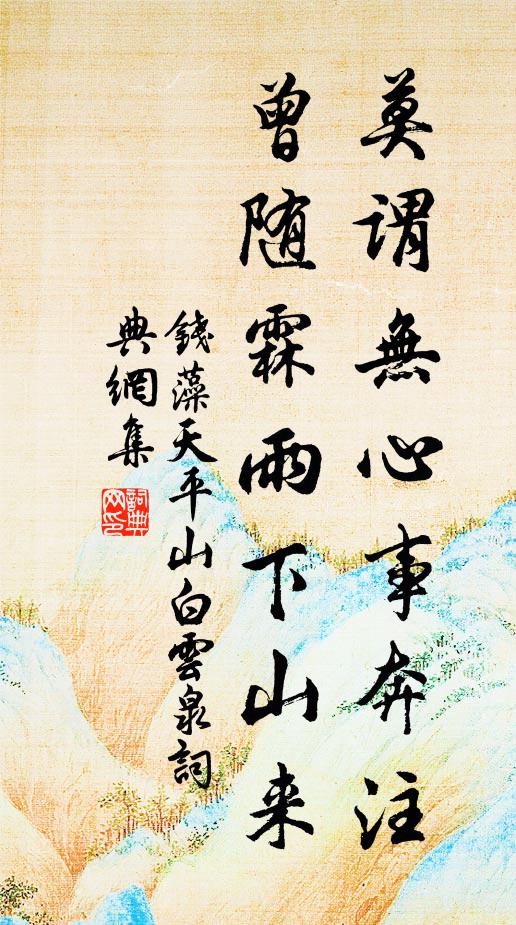 莫謂無心事奔注
曾随霖雨下山来
錢藻天平山白雲泉詞
典網集
詞典網印